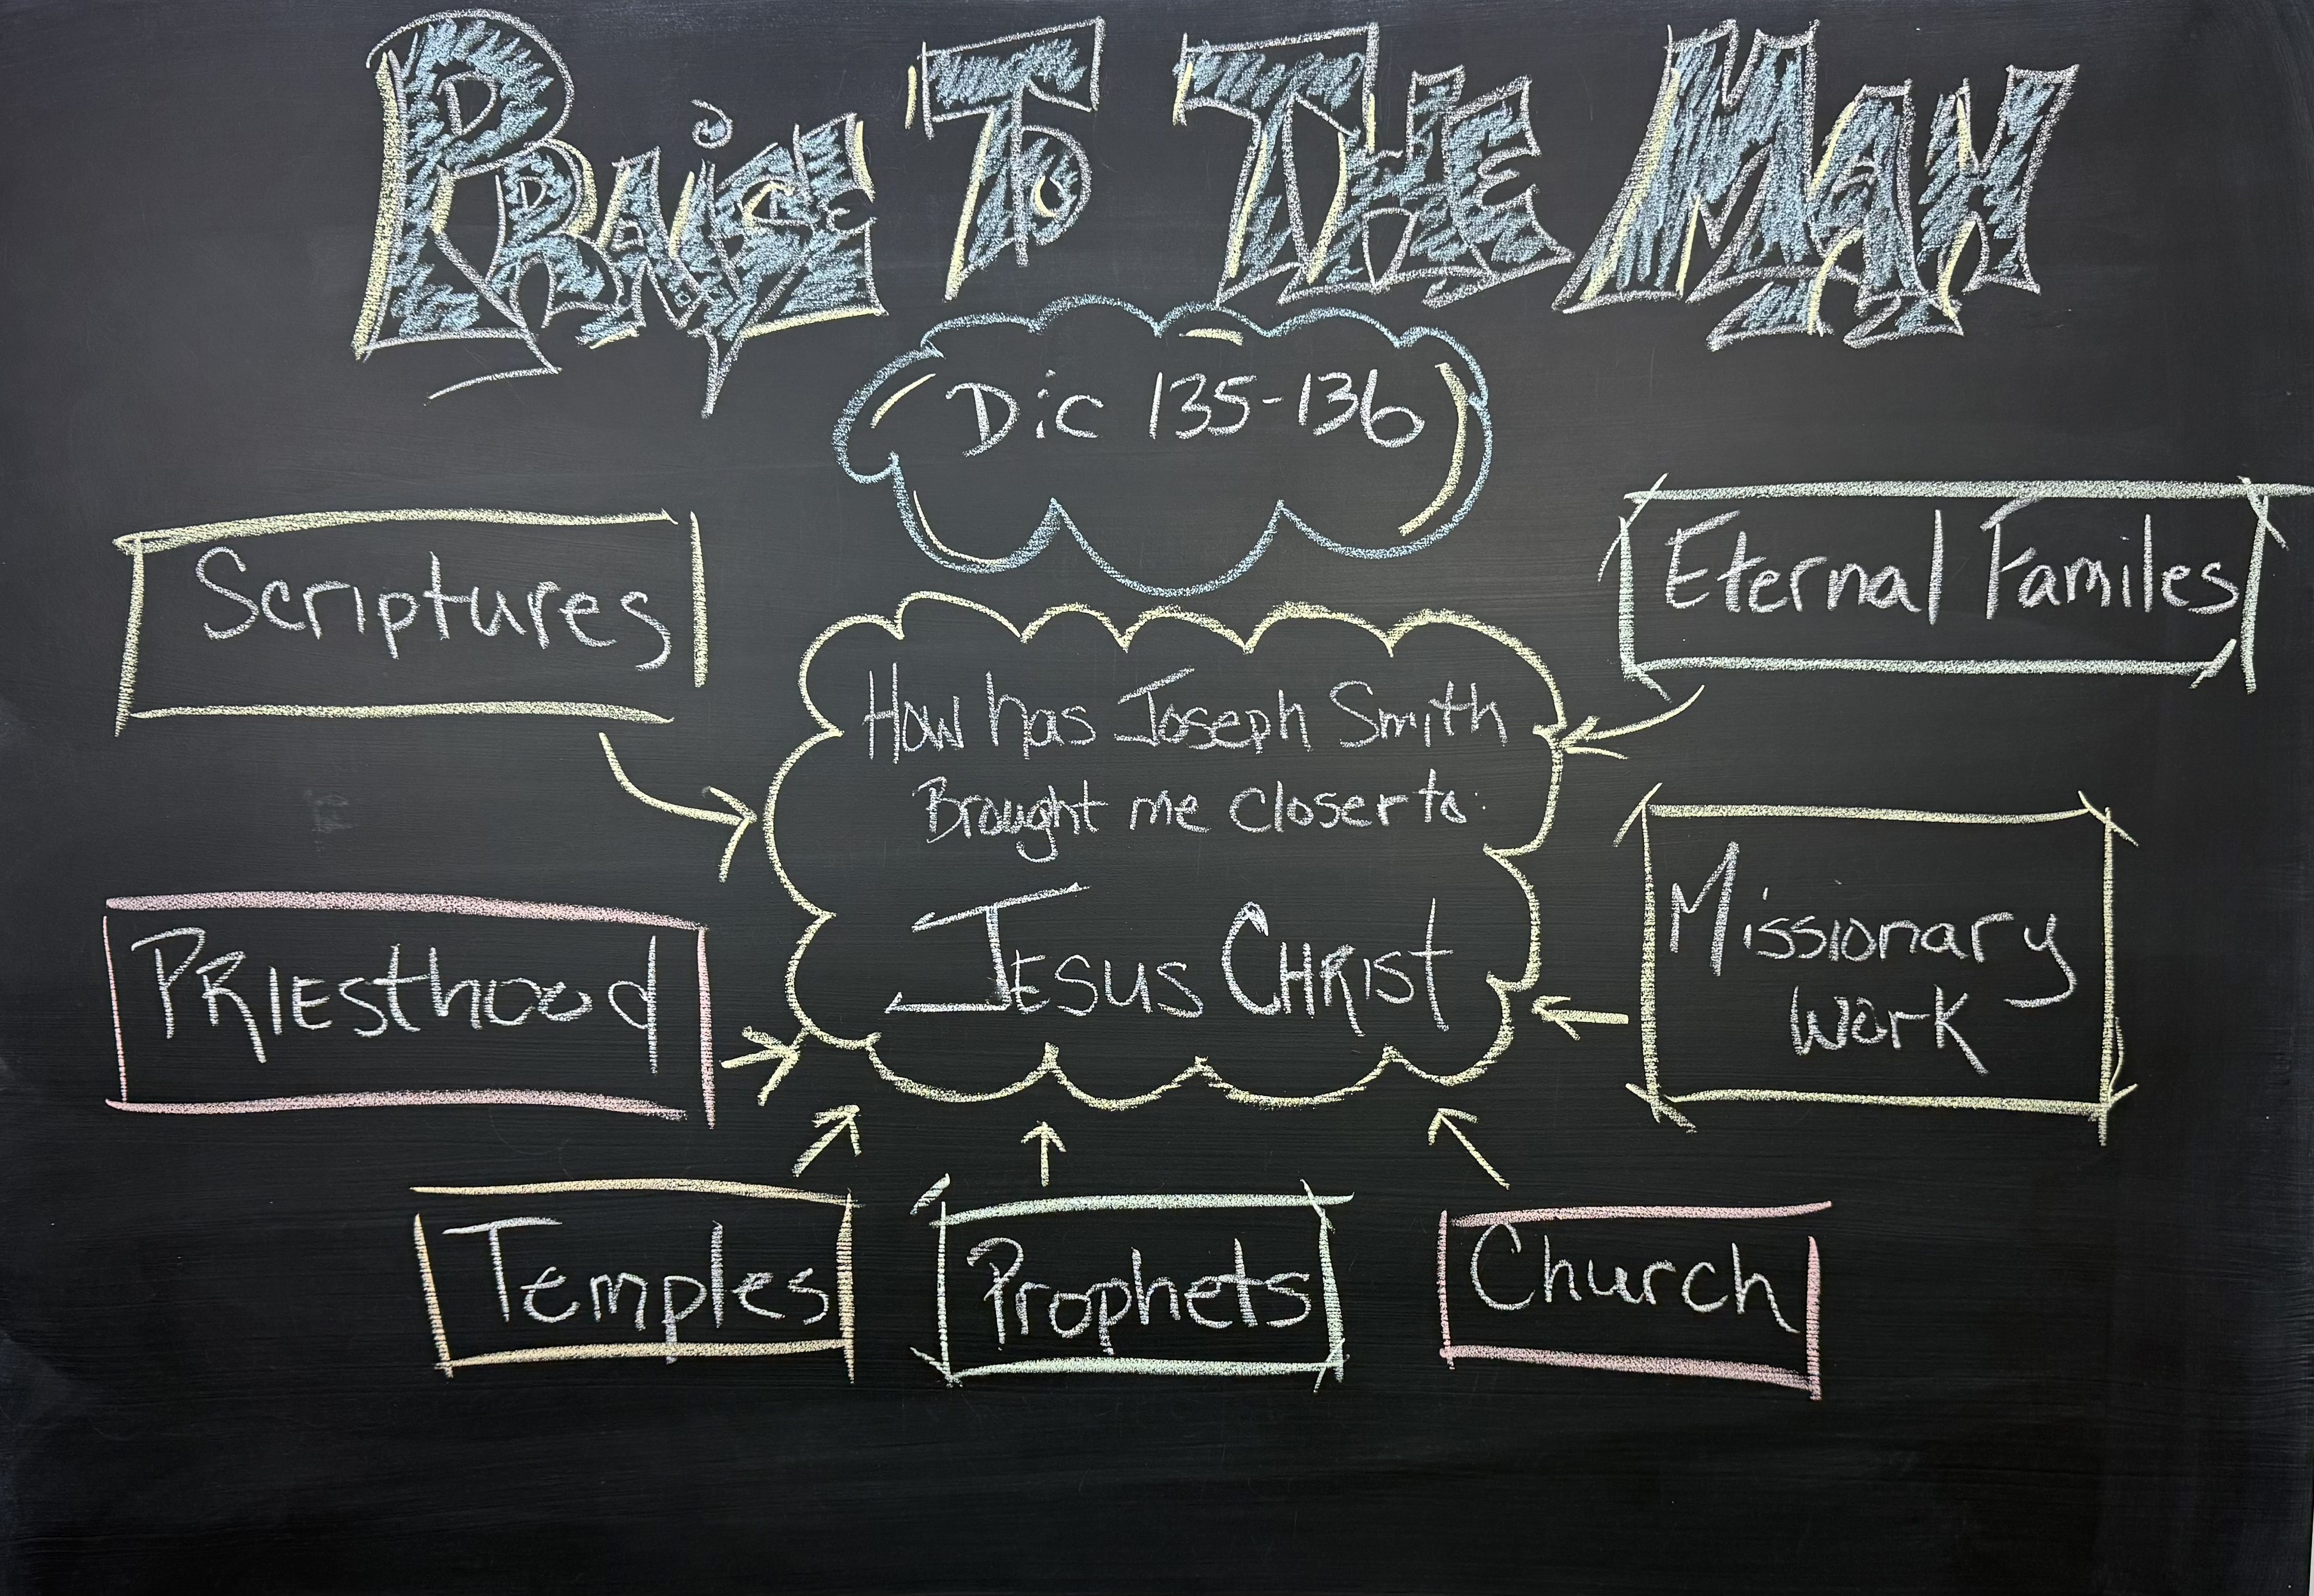 PRAiSE To THE MaN
D:C 135-136
Scriptures
Eternal Familes
How has Joseph Smith
Brought me closer to:
JESUS CHRIST
PRIESthood
Missionary
Work
Temples
Prophets
Church